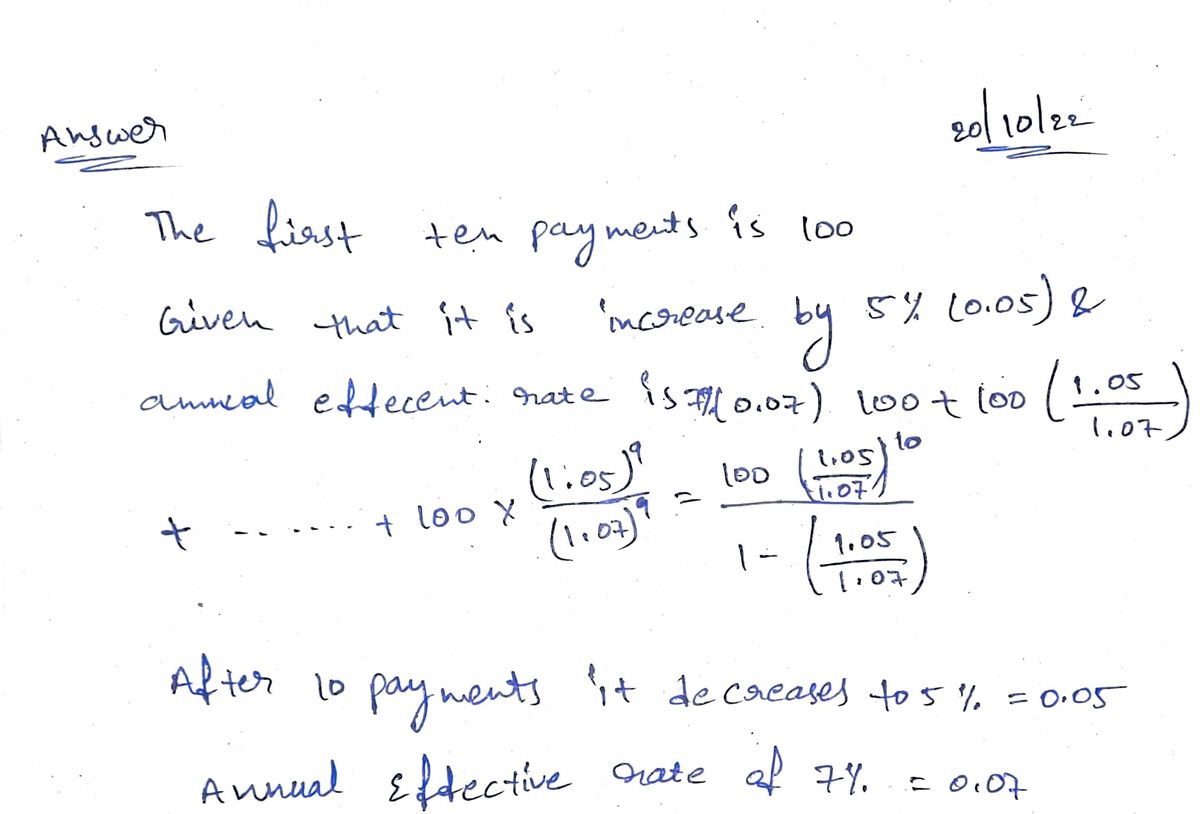 Answer 20/10/22
The first ten payments is 100
Given that it is increase by 5% (0.05) &
annual effecent. rate is 7% (0.07) 100 + 100 (1.05/1.07)
+ ....... + 100 × (1.05)^9/(1.07)^9 = 100 (1.05/1.07)^10 / 1 - (1.05/1.07)
After 10 payments it decreases to 5% = 0.05
Annual Effective rate of 7% = 0.07